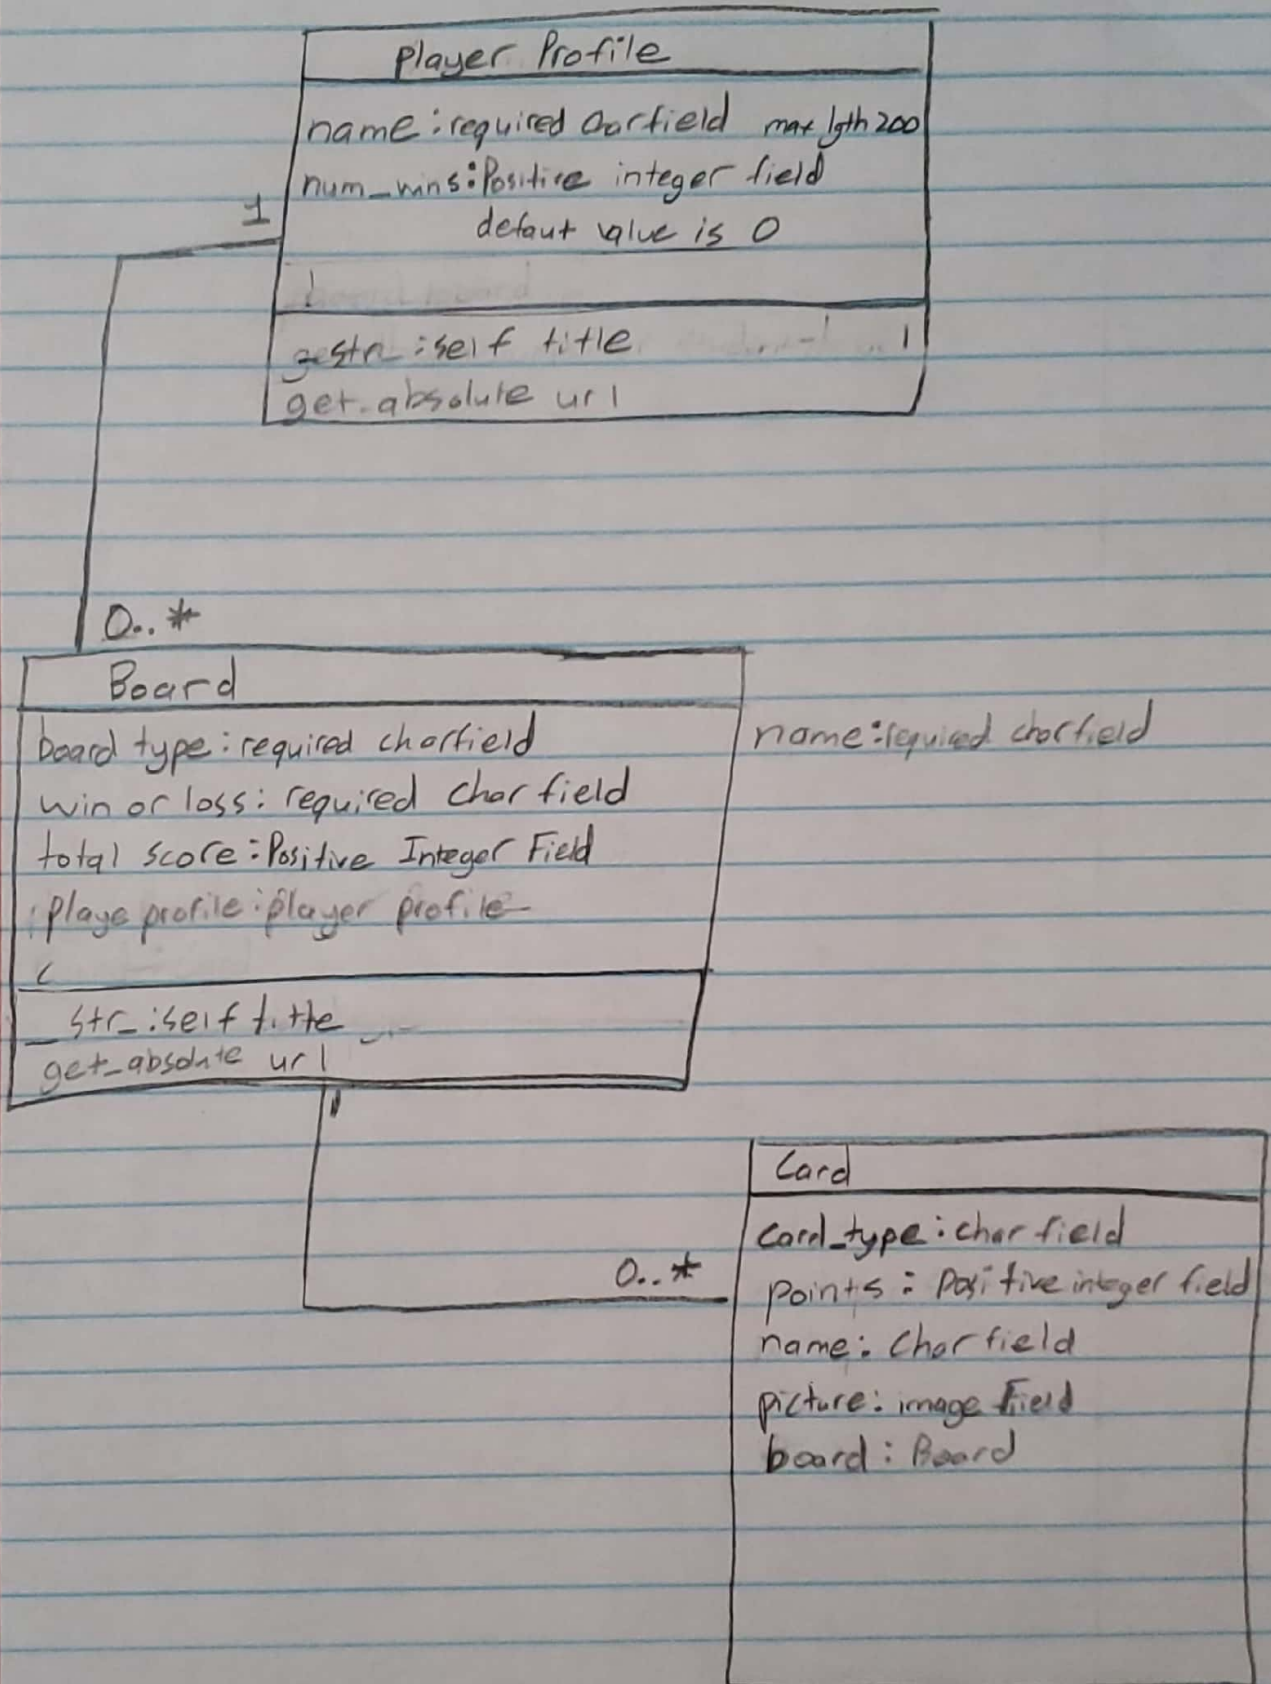 Player Profile
name: required Charfield max lgth 200
num_wins: Positive integer field
defaut value is 0
1
_str_: self title
get_absolute url
0..*
Board
board type: required charfield
name: required charfield
win or loss: required Char field
total score: Positive Integer Field
playe profile: player profile
_str_: self title
get_absolute url
Card
card_type: char field
0..*
points: Positive integer field
name: Char field
picture: image Field
board: Board